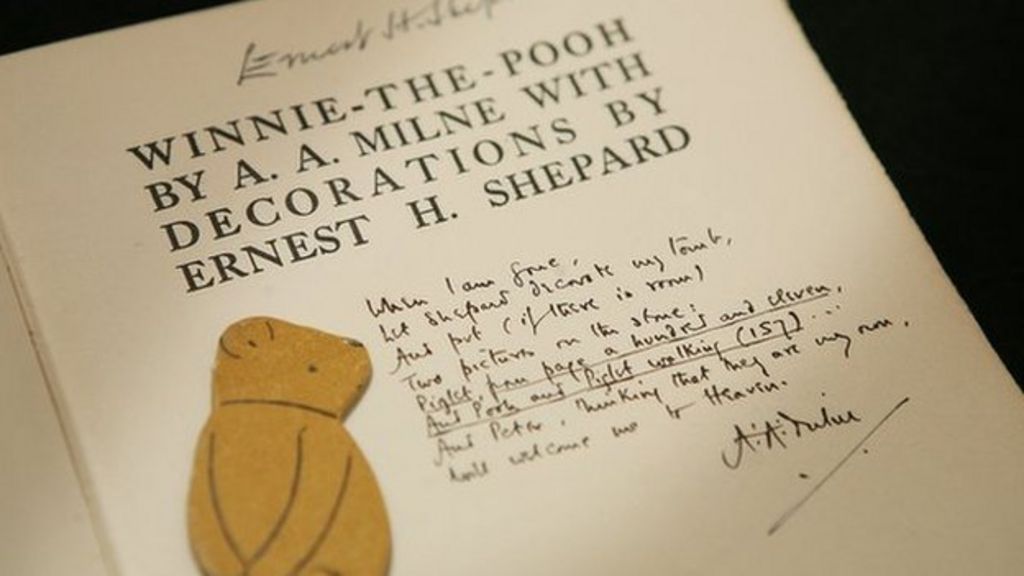 Ernest H. Shep
WINNIE-THE-POOH
BY A. A. MILNE WITH
DECORATIONS BY
ERNEST H. SHEPARD
When I am gone,
Let Shepard decorate my tomb,
And put (if there is room)
Two pictures on the stone:
Piglet, from page a hundred and eleven,
And Pooh and Piglet walking (157)...
And Peter, thinking that they are my own,
Will welcome me to Heaven.
A.A. Milne